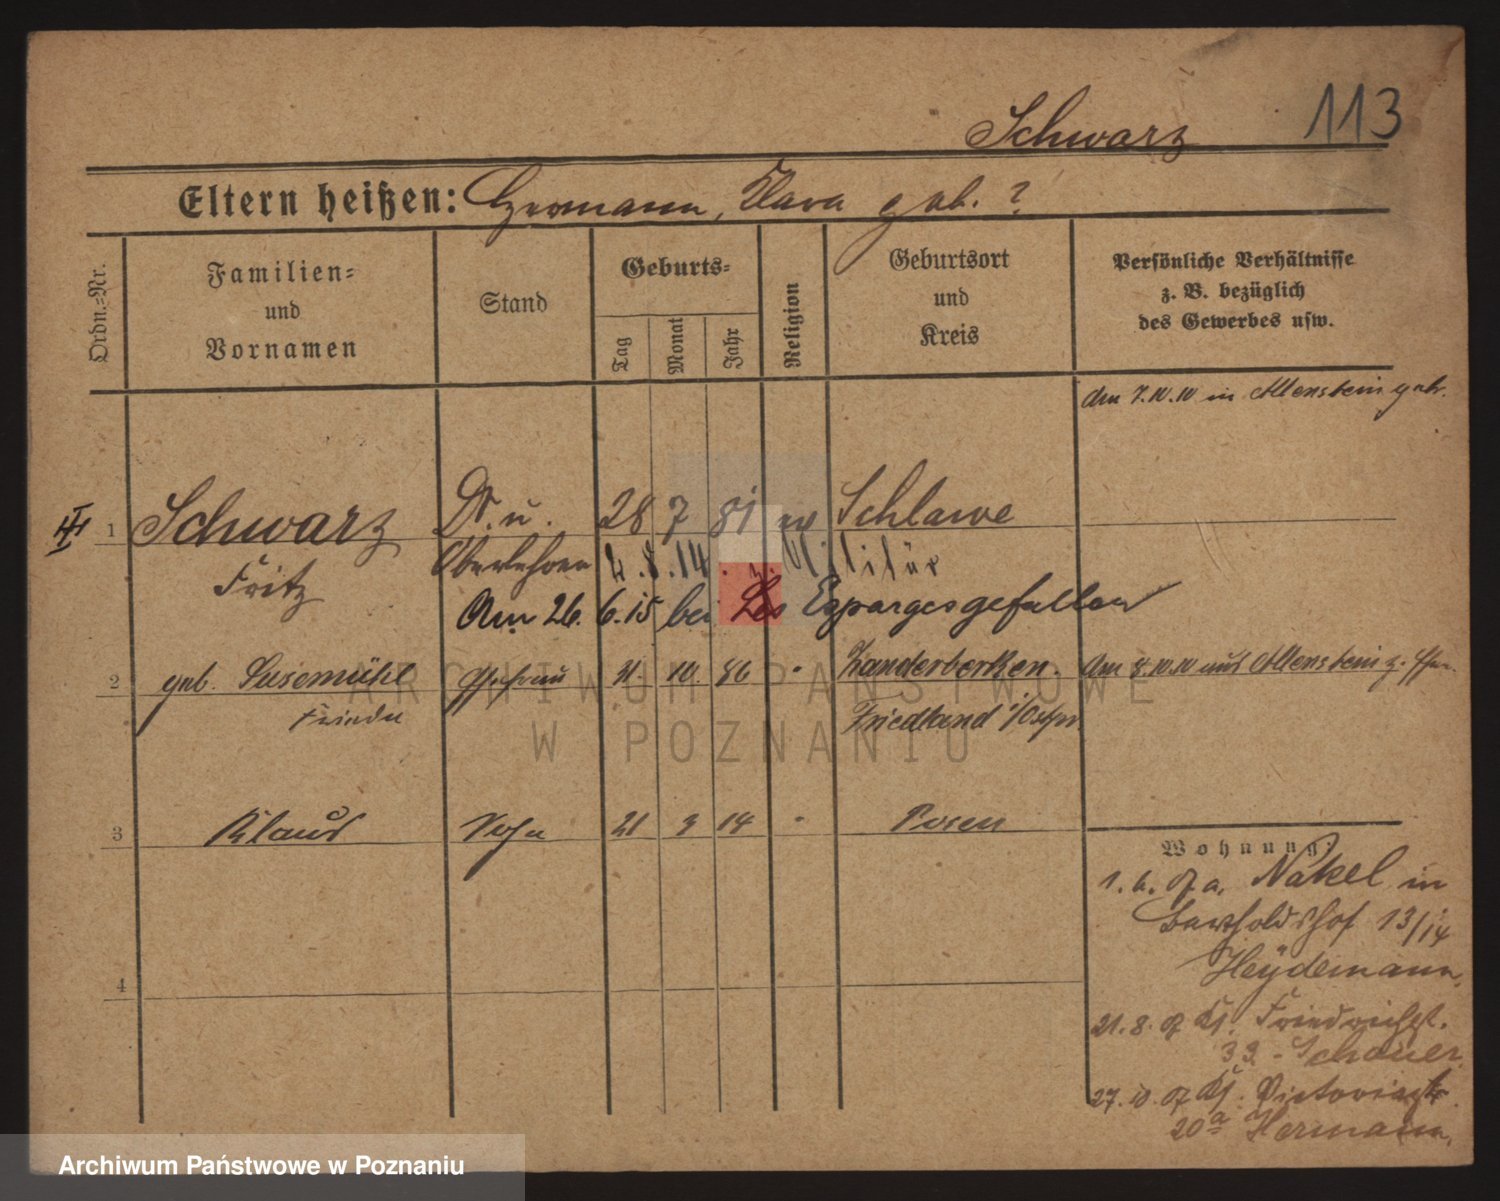 113
Schwarz
Eltern heißen: Hermann, Klara geb. ?
Ordn.=Nr.
Familien=
und
Vornamen
Stand
Geburts=
Tag
Monat
Jahr
Religion
Geburtsort
und
Kreis
Persönliche Verhältnisse
z. B. bezüglich
des Gewerbes usw.
Am 7.10.10 in Allenstein geh.
1 Schwarz Dr. u. 28 7 81 ev Schlawe
Fritz Oberlehrer 2.8.14. z. Militär
Am 26. 6.15 bei Les Eparges gefallen
2 geb. Susemühl Ehefrau 10. 86 - Zanderborken. Am 8.10.10 aus Allenstein z.
Frieda Friedland i/Ostpr.
3 Klaus Sohn 21 3 14 - Posen
Wohnung:
1. 6. 07 a. Nakel in
Bertholdshof 13/14
Heydemann.
4
21. 8. 07 Kj. Friedrichst.
33. Schauer
27. 10. 07 Kj. Victoriastr.
20a Hermann.
ARCHIWUM PAŃSTWOWE
W POZNANIU
Archiwum Państwowe w Poznaniu